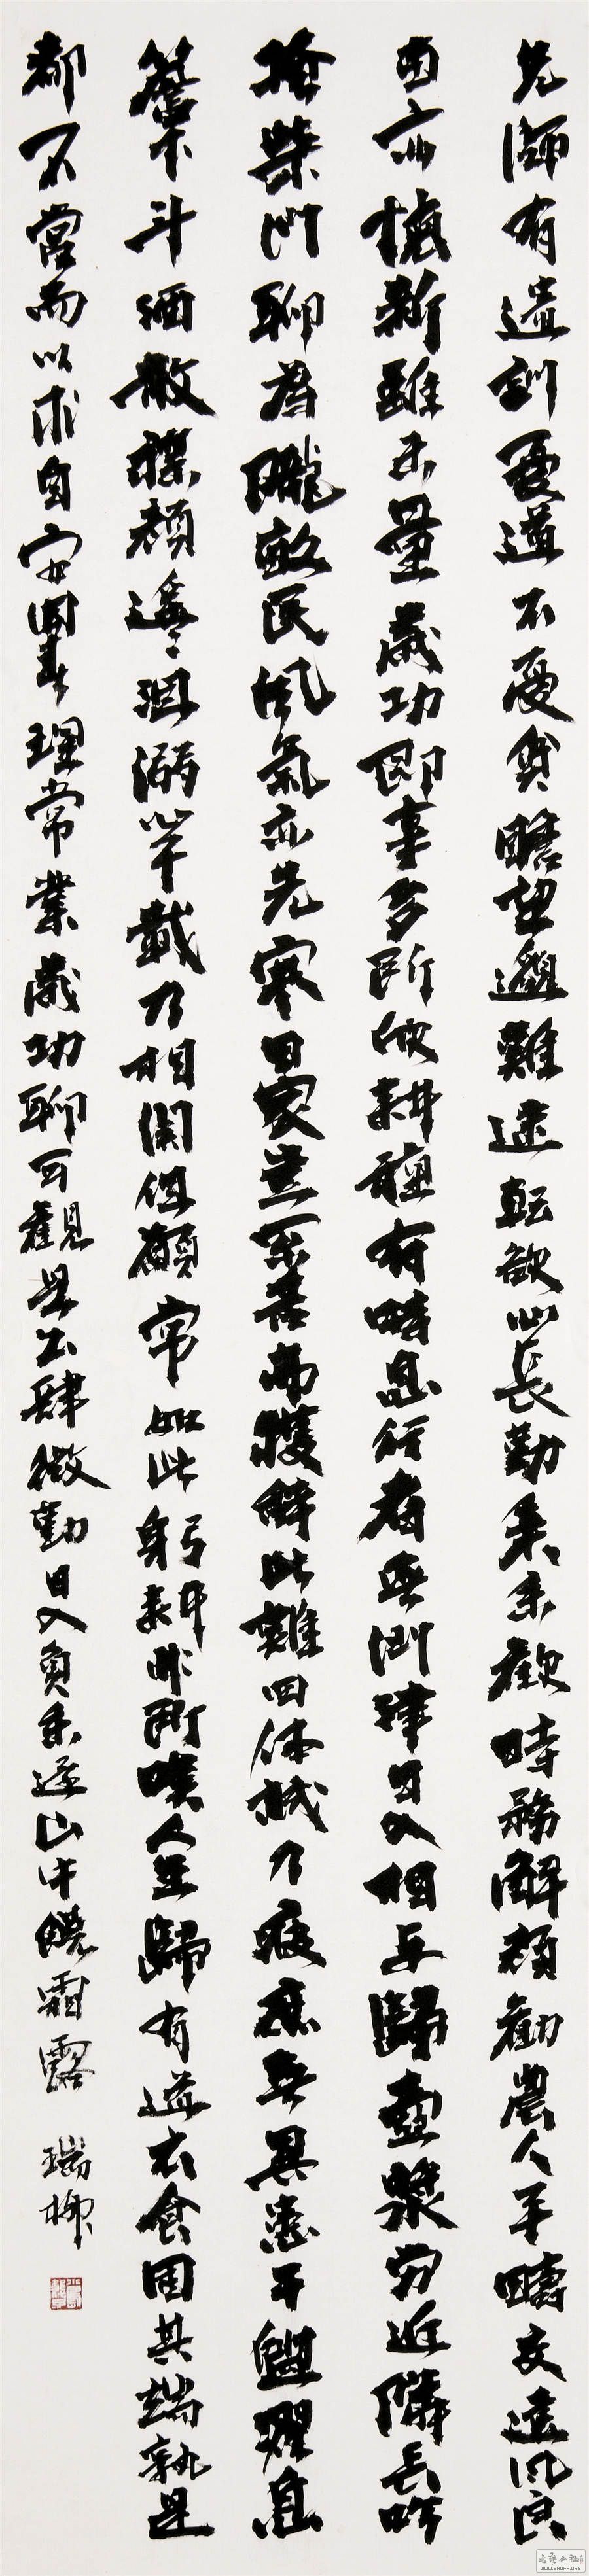 先師有遺訓憂道不憂貧瞻望邈難逮転欲心長勤秉耒歡時務解顏勸農人平疇交遠風良
苗亦懷新雖未量歲功即事多所欣耕種有時息行者無問津日入相與歸壺漿勞近隣長吟
掩柴門聊為隴畝民風氣亦先寒田家豈不苦弗獲辭此難四体誠乃疲庶無異患干盥濯息
簷下斗酒散襟顏遙々沮溺心千載乃相関但願常如此躬耕非所嘆人生歸有道衣食固其端孰是
都不營而以求自安開春理常業歲功聊可觀晨出肆微勤日入負耒還山中饒霜露
瑞柳
WWW.SHUFA.ORG